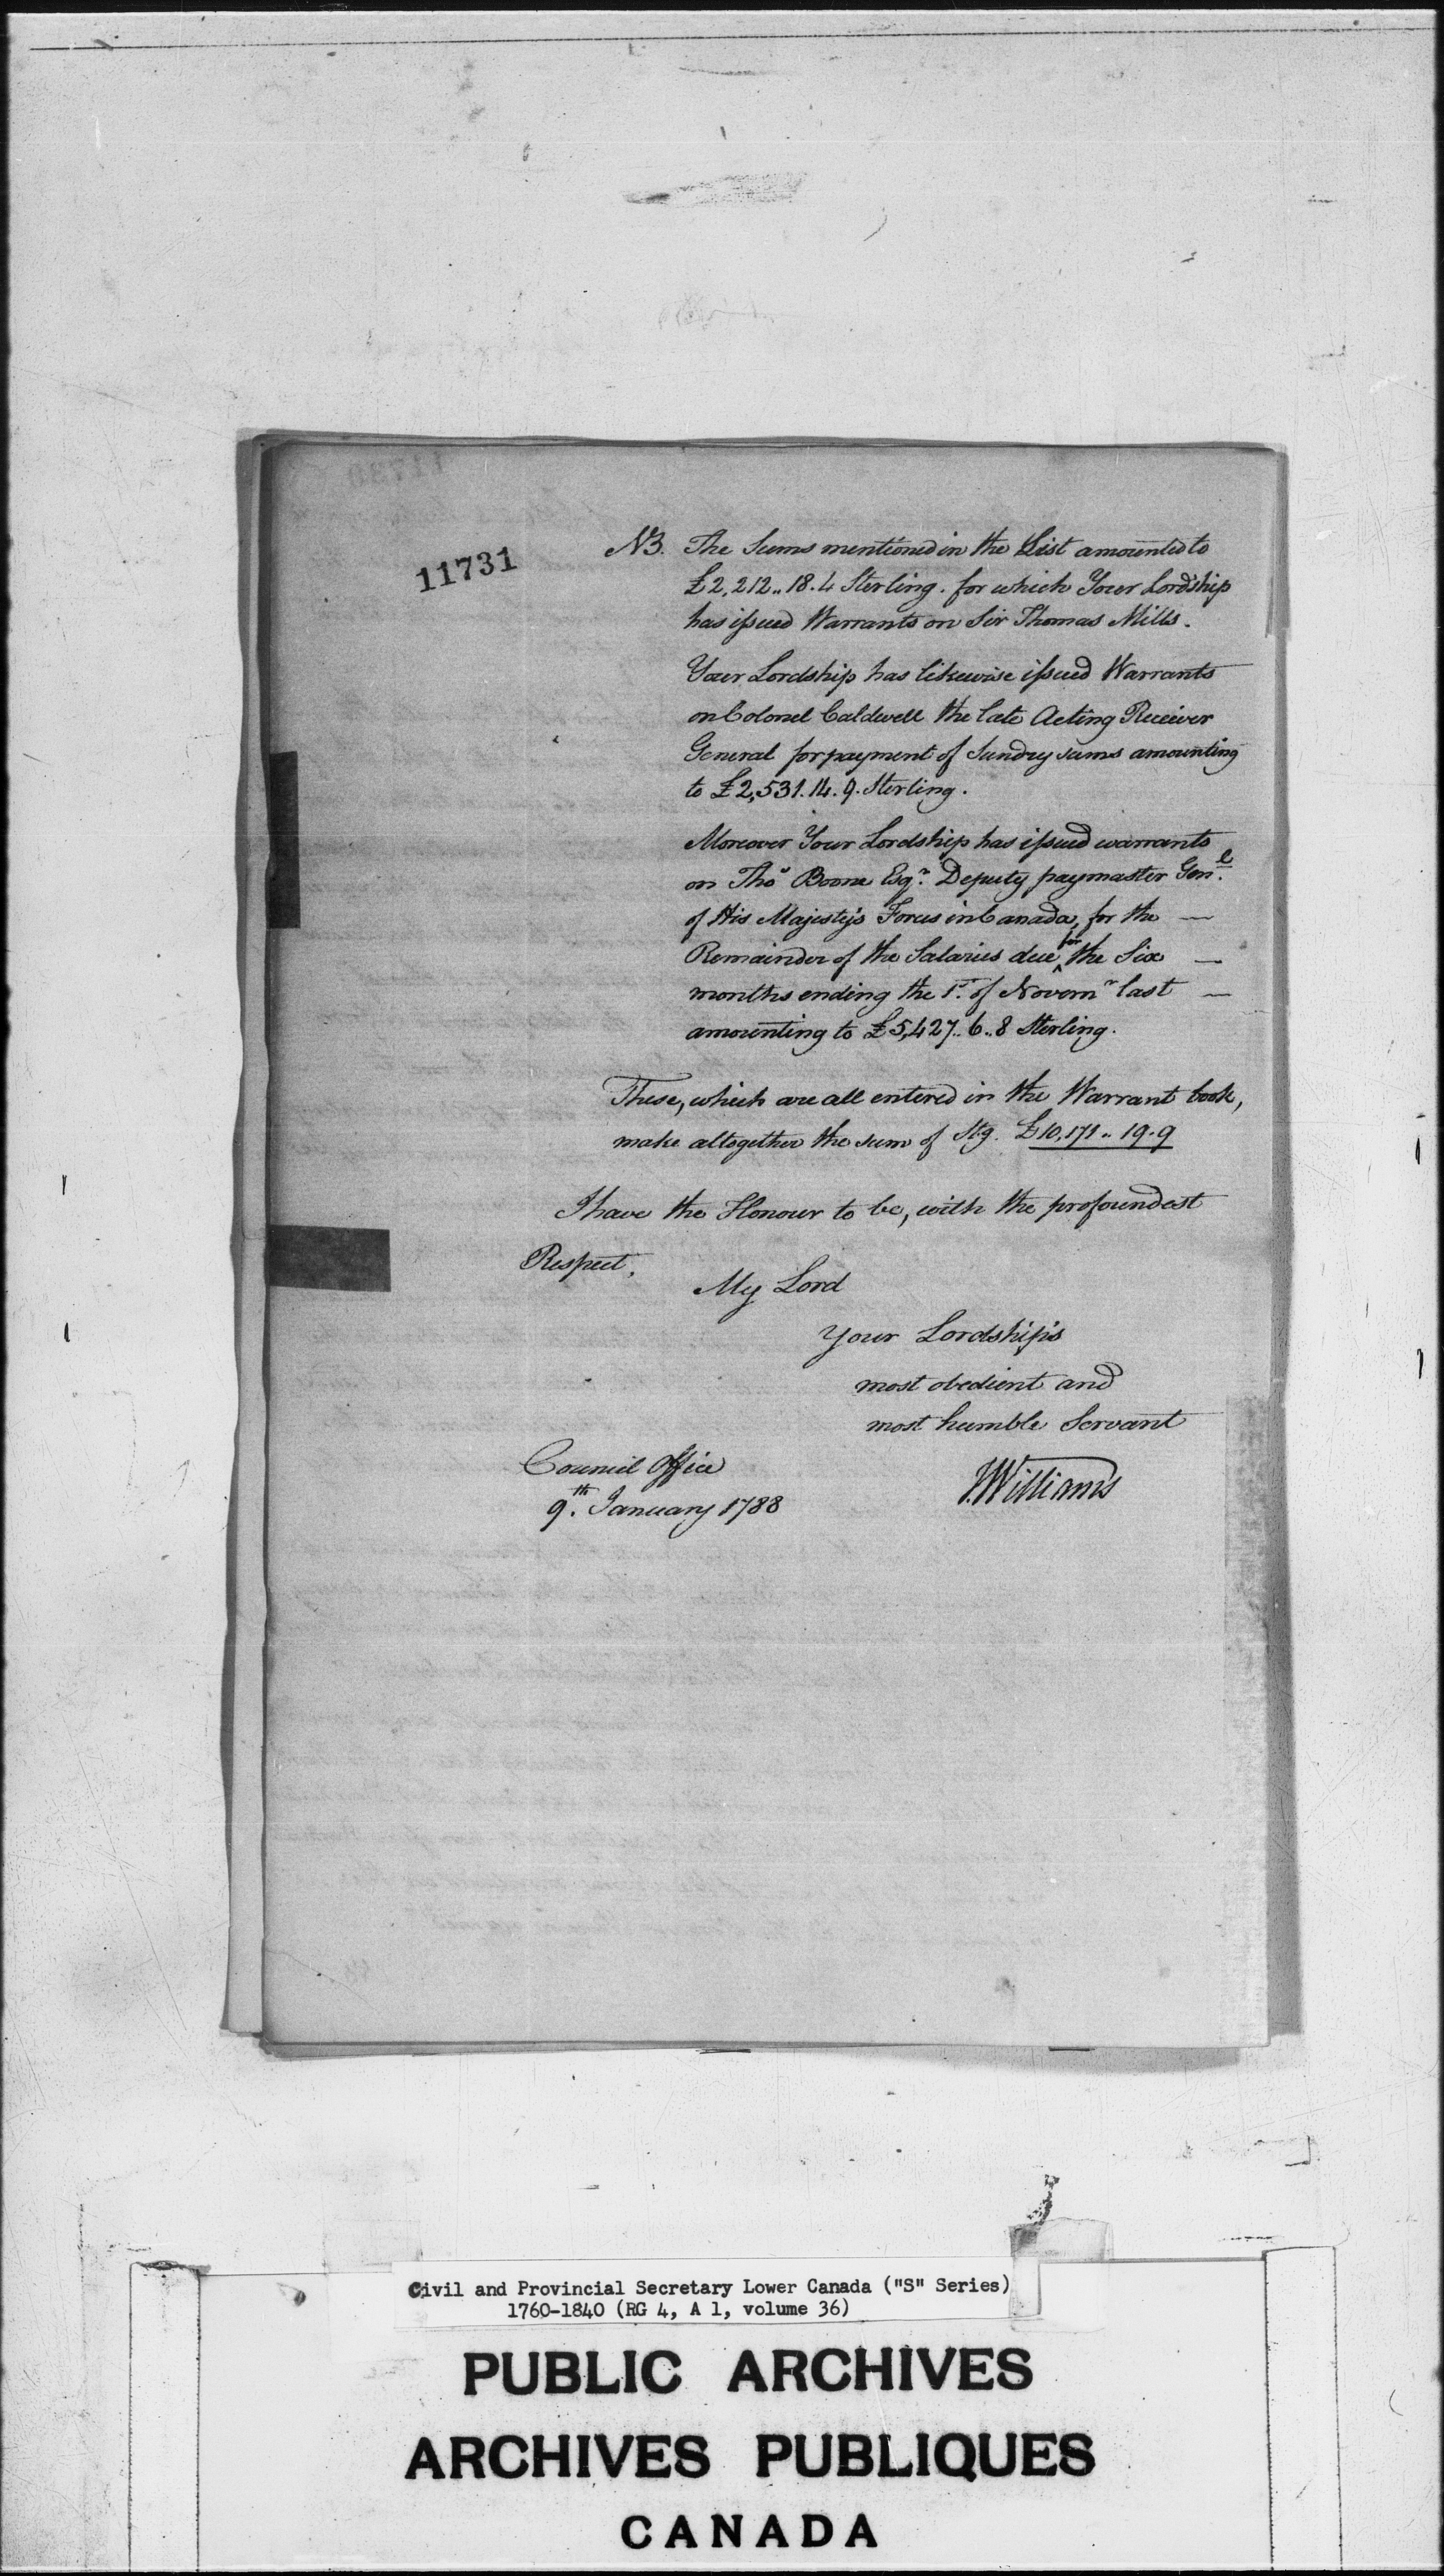 11731
NB. The Sums mentioned in the List amounted to
£2,212..18.4 Sterling. for which Your Lordship
has issued Warrants on Sir Thomas Mills.
Your Lordship has likewise issued Warrants
on Colonel Caldwell the late Acting Receiver
General for payment of Sundry sums amounting
to £2,531.14.9. Sterling.
Moreover Your Lordship has issued warrants
on Thos Boone Esqr. Deputy paymaster Genl.
of His Majesty's Forces in Canada, for the —
Remainder of the Salaries due for the Six —
months ending the 1st. of Novemr last —
amounting to £5,427..6..8 Sterling.
These, which are all entered in the Warrant book,
make altogether the sum of Stg. £10,171..19.9
I have the Honour to be, with the profoundest
Respect,
My Lord
Your Lordship's
most obedient and
most humble Servant
J.Williams
Council Office
9th. January 1788
Civil and Provincial Secretary Lower Canada ("S" Series)
1760-1840 (RG 4, A 1, volume 36)
PUBLIC ARCHIVES
ARCHIVES PUBLIQUES
CANADA